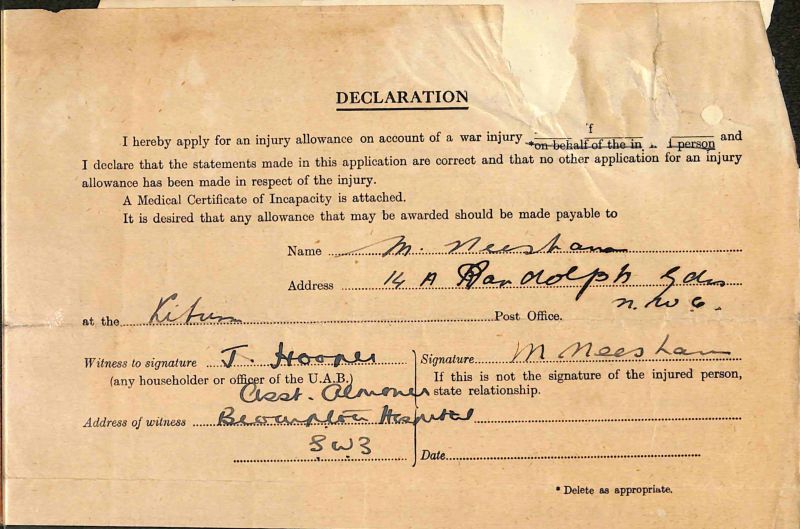 DECLARATION
I hereby apply for an injury allowance on account of a war injury *on behalf of the person and
I declare that the statements made in this application are correct and that no other application for an injury
allowance has been made in respect of the injury.
A Medical Certificate of Incapacity is attached.
It is desired that any allowance that may be awarded should be made payable to
Name M. Neesham
Address 14 A Randolph Gdns
N.W.6.
at the Post Office.
Witness to signature J. Hooper
(any householder or officer of the U.A.B.)
Asst. Almoner
Address of witness Brompton Hospital
SW3
Signature M Neesham
If this is not the signature of the injured person,
state relationship.
Date
* Delete as appropriate.